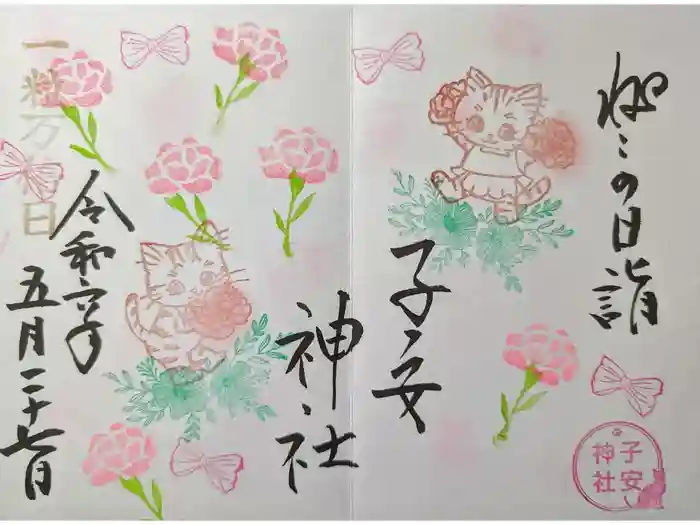 ねこの日詣
子安
神社
子安
神社
令和六年
五月二十七日
一粒万倍日